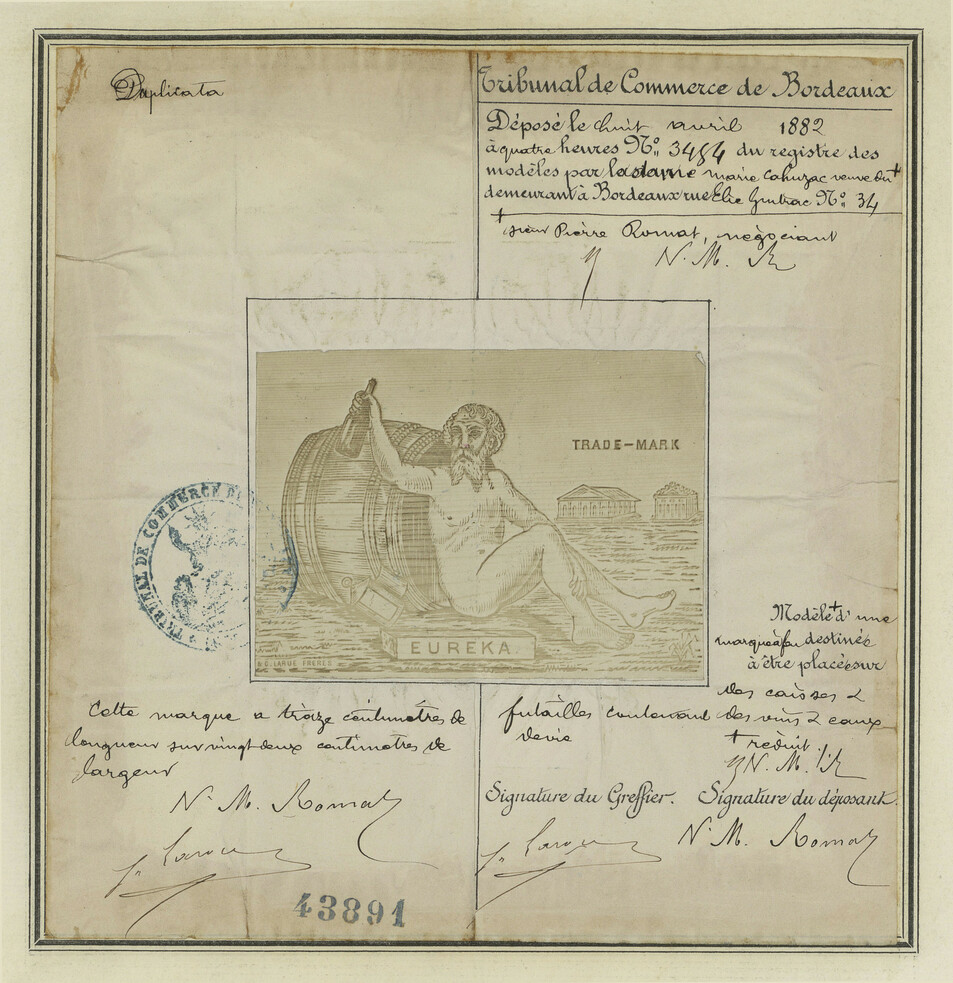 Duplicata
Tribunal de Commerce de Bordeaux
Déposé le huit avril 1882
à quatre heures N° 3484 du registre des
modèles par la dame marie Cahuzac veuve du +
demeurant à Bordeaux rue Elie Gintrac N° 34
+ sieur Pierre Romat, négociant
N. M. R
TRADE-MARK
EUREKA.
LARUE FRERES
TRIBUNAL DE COMMERCE DE
Modèle + d'une
marque à feu destinée
à être placée sur
des caisses &
futailles contenant des vins & eaux
de vie
+ réduit ./.
N. M. R
Cette marque a trèze centimètres de
longueur sur vingt-deux centimètres de
largeur
N. M. Romat
Signature du Greffier. Signature du déposant.
N. M. Romat
43891